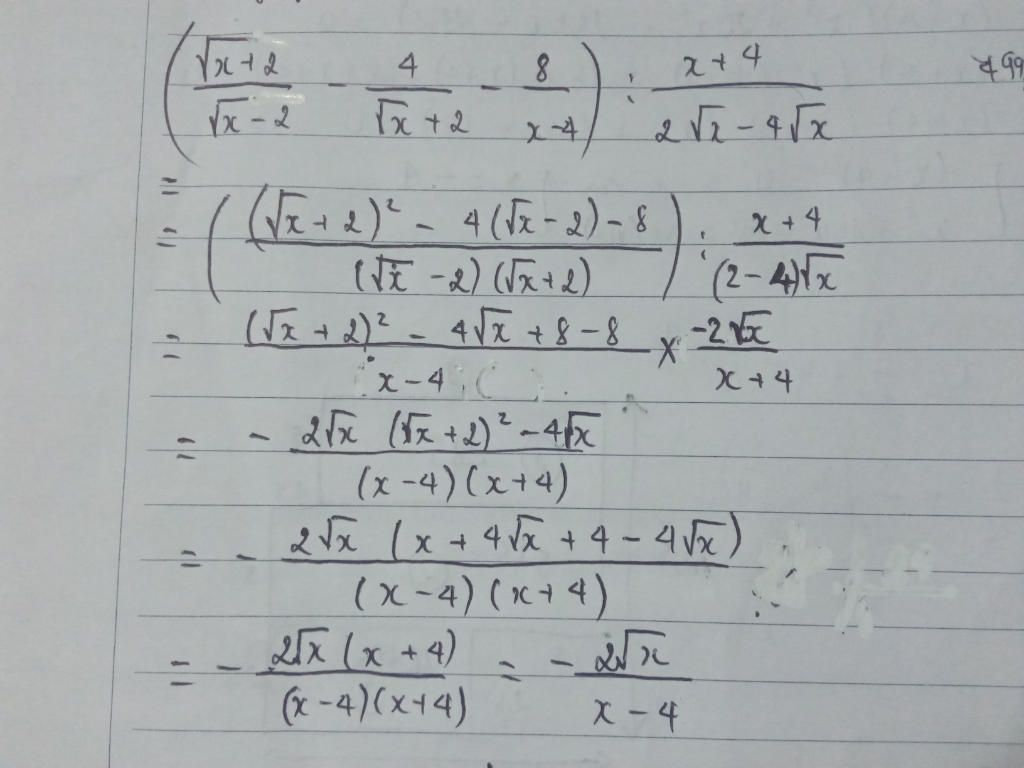 (√x+2 / √x-2 - 4 / √x+2 - 8 / x-4) : x+4 / 2√x-4√x
=
= ((√x+2)² - 4(√x-2)-8 / (√x-2)(√x+2)) : x+4 / (2-4)√x
= (√x+2)² - 4√x+8-8 / x-4 × -2√x / x+4
= - 2√x (√x+2)²-4√x / (x-4)(x+4)
= - 2√x (x+4√x+4-4√x) / (x-4)(x+4)
= - 2√x(x+4) / (x-4)(x+4) = - 2√x / x-4